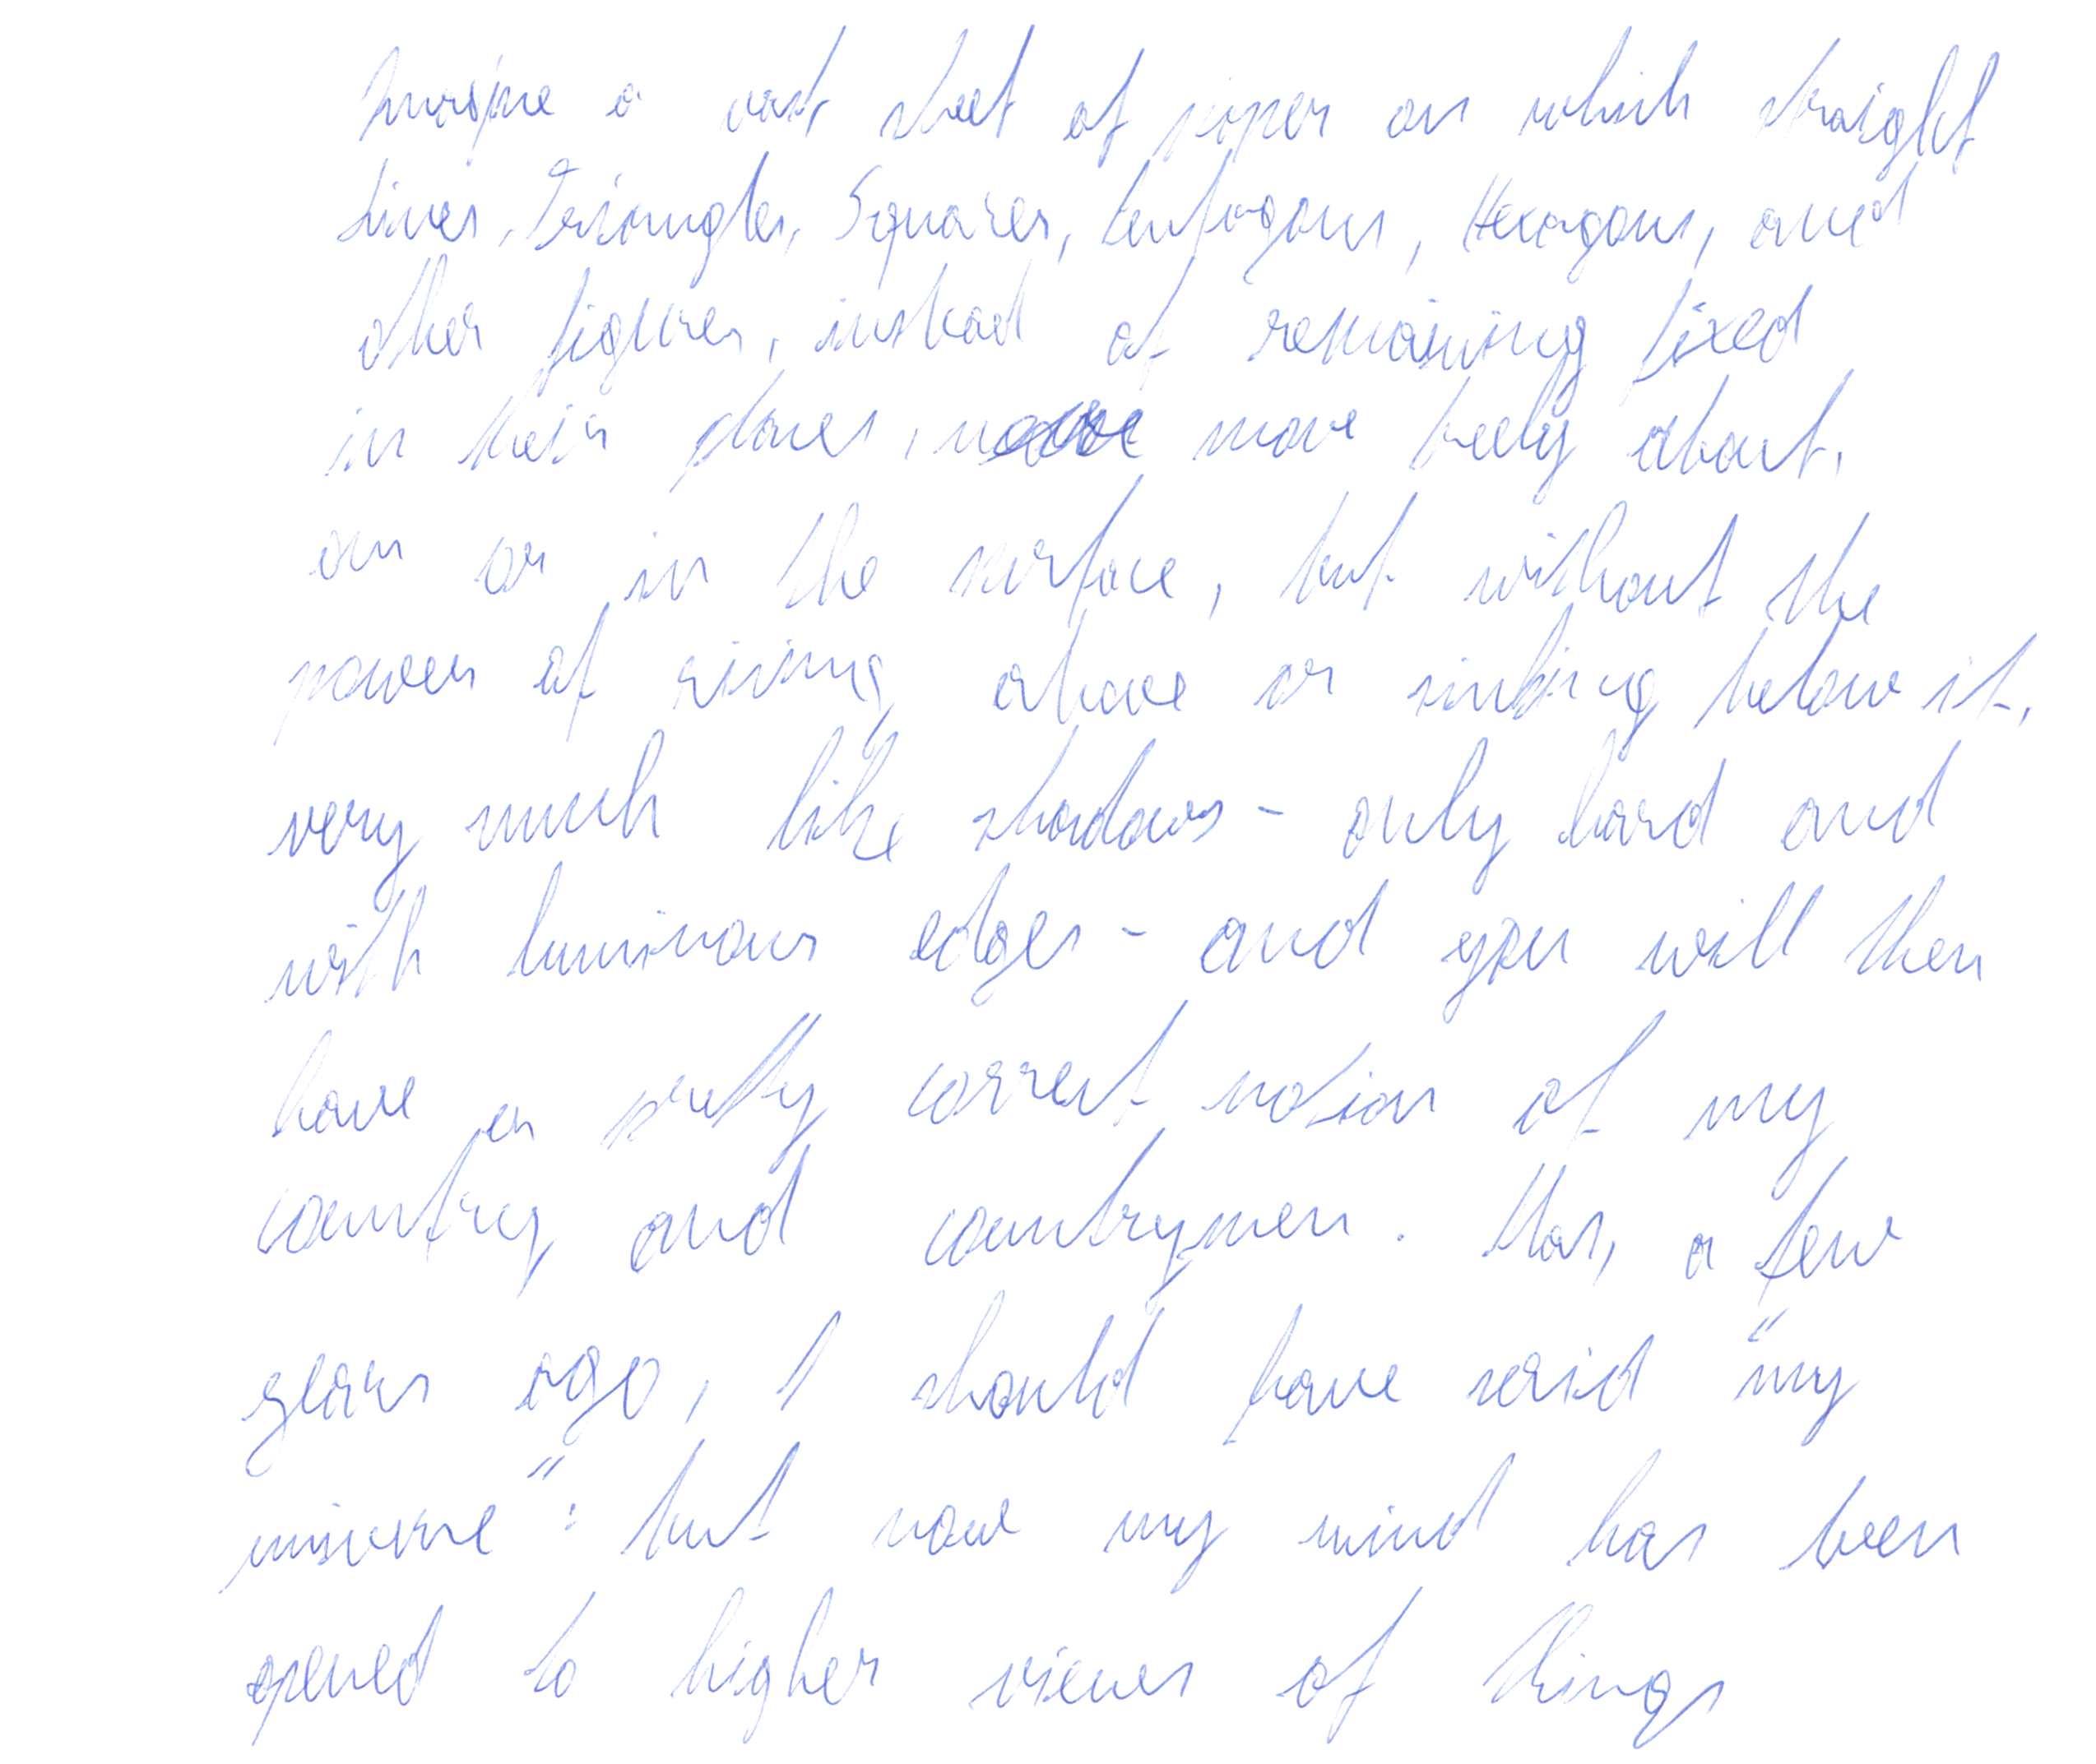 Imagine a vast sheet of paper on which straight
Lines, Triangles, Squares, Pentagons, Hexagons, and
other figures, instead of remaining fixed
in their places, move freely about,
on or in the surface, but without the
power of rising above or sinking below it,
very much like shadows - only hard and
with luminous edges - and you will then
have a pretty correct notion of my
country and countrymen. Alas, a few
years ago, I should have said "my
universe": but now my mind has been
opened to higher views of things